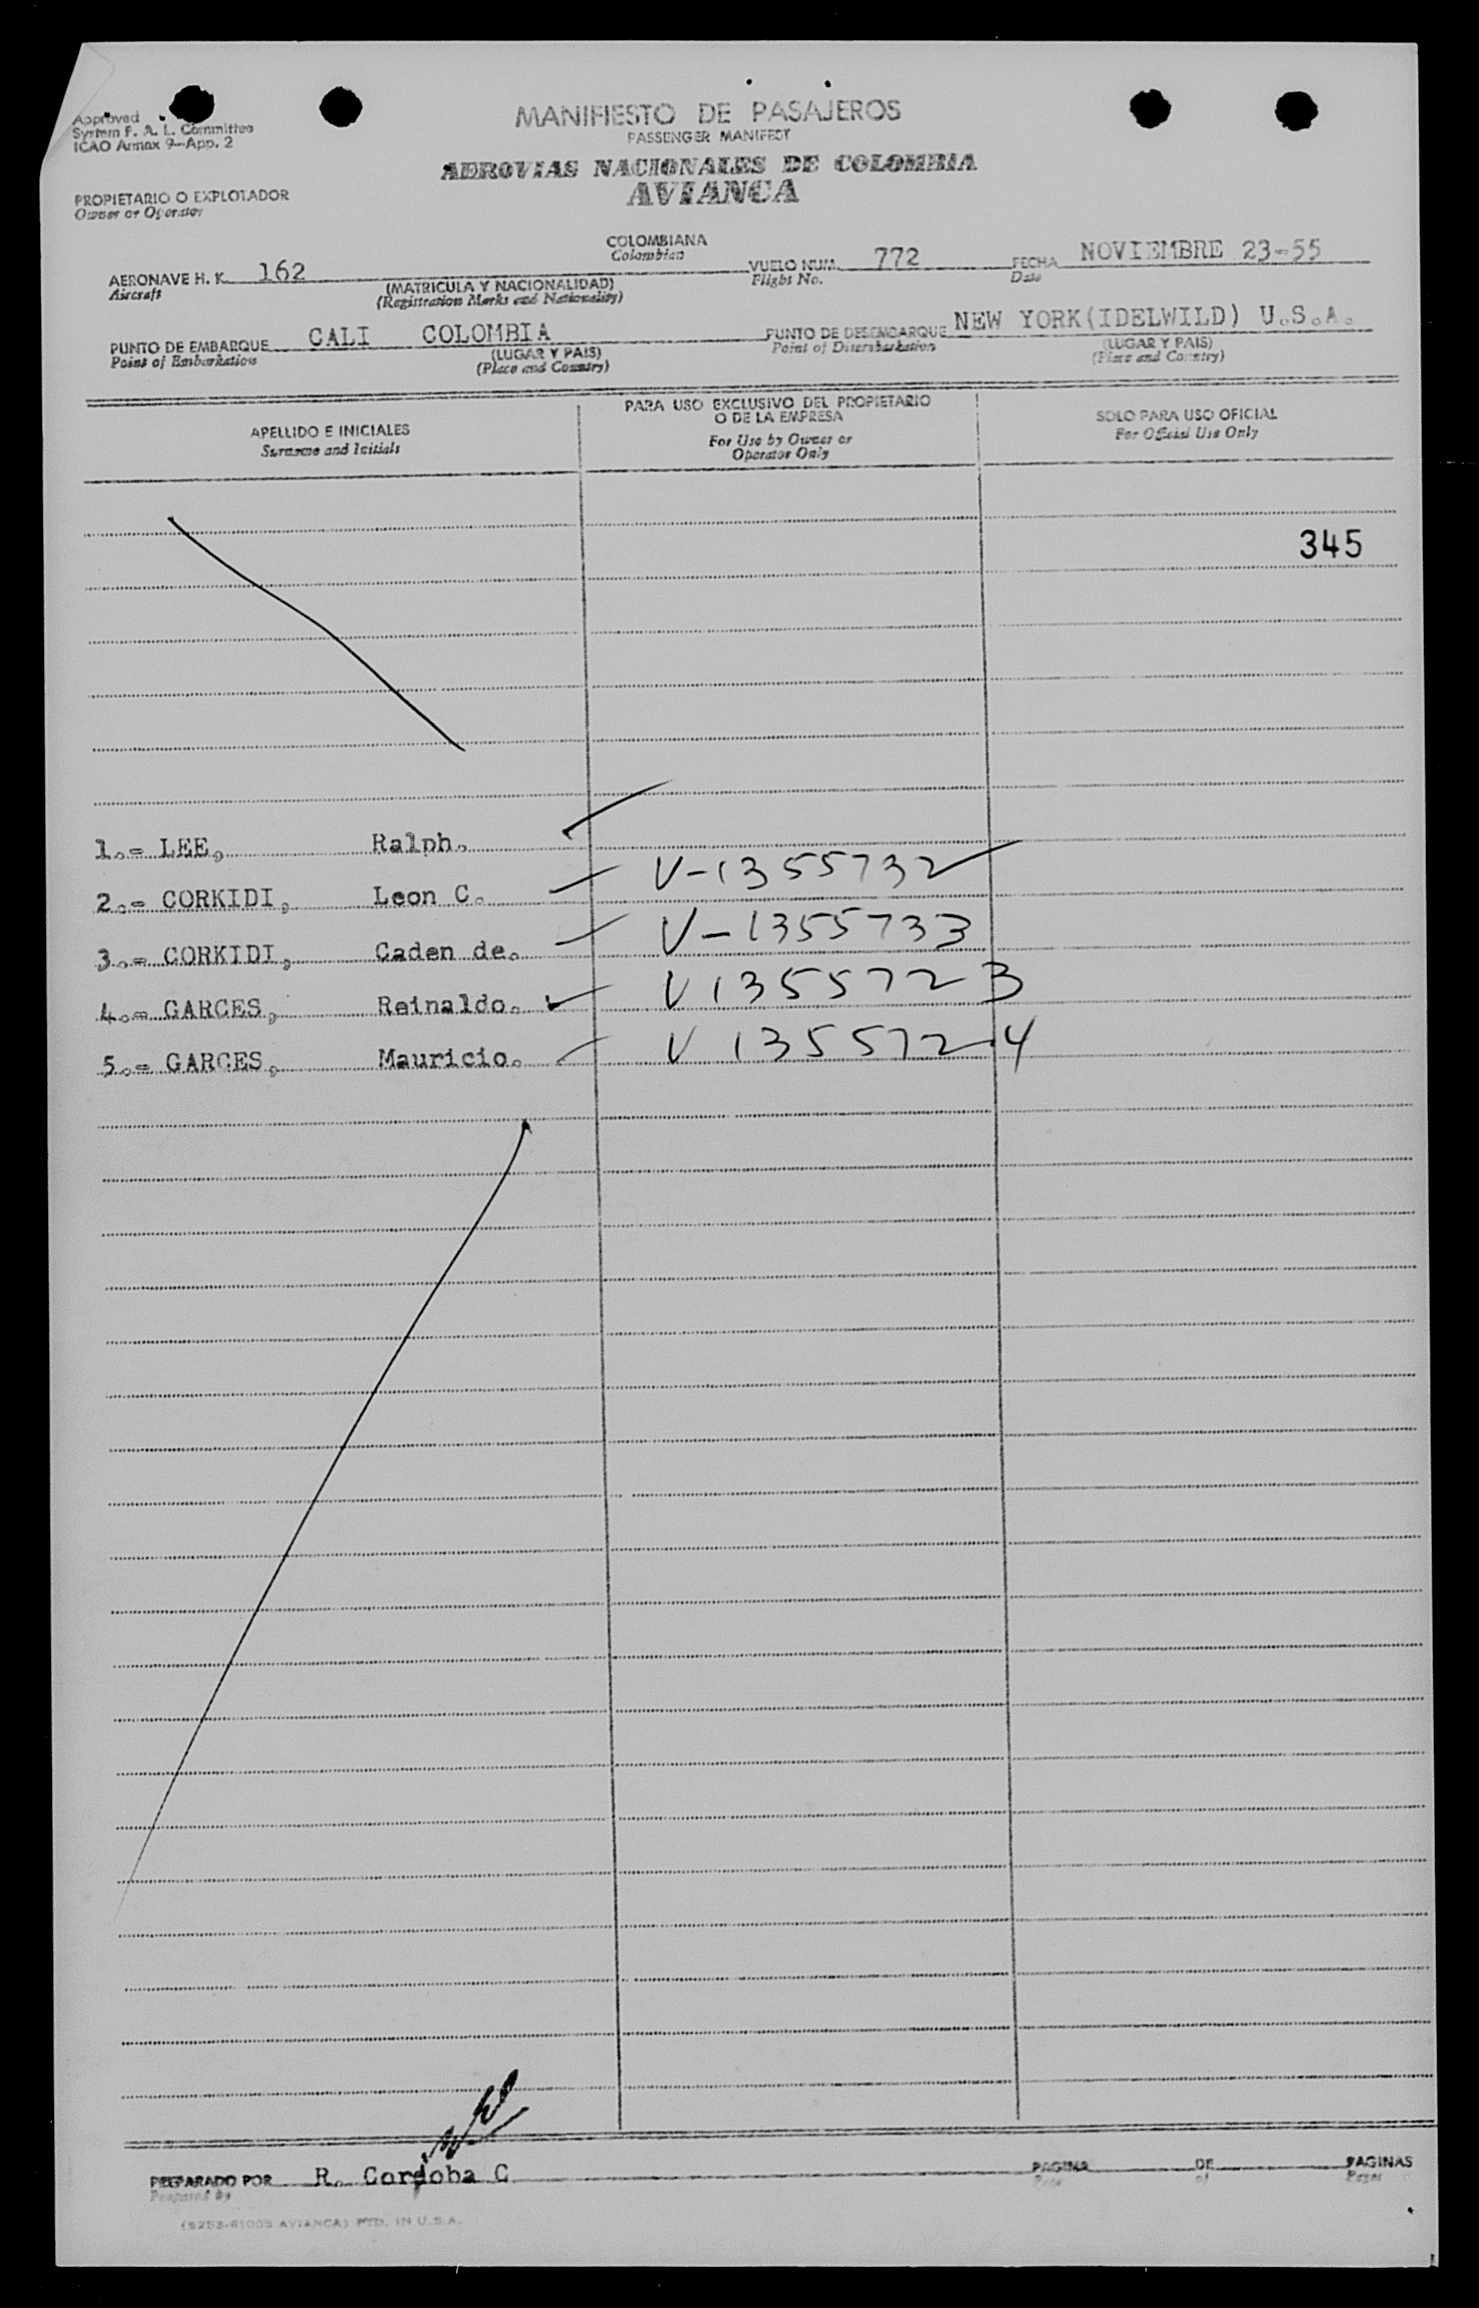 Approved
System F. A. L. Committee
ICAO Annex 9-App. 2
MANIFIESTO DE PASAJEROS
PASSENGER MANIFEST
AEROVIAS NACIONALES DE COLOMBIA
AVIANCA
PROPIETARIO O EXPLOTADOR
Owner or Operator
COLOMBIANA
Colombian
AERONAVE H. K. 162 VUELO NUM. 772 FECHA NOVIEMBRE 23-55
Aircraft (MATRICULA Y NACIONALIDAD) Flight No. Date
(Registration Marks and Nationality)
PUNTO DE EMBARQUE CALI COLOMBIA PUNTO DE DESEMBARQUE NEW YORK(IDELWILD) U.S.A.
Point of Embarkation (LUGAR Y PAIS) Point of Disembarkation (LUGAR Y PAIS)
(Place and Country) (Place and Country)
APELLIDO E INICIALES
Surname and Initials
PARA USO EXCLUSIVO DEL PROPIETARIO
O DE LA EMPRESA
For Use by Owner or
Operator Only
SOLO PARA USO OFICIAL
For Official Use Only
345
1.- LEE, Ralph.
2.- CORKIDI, Leon C. V-1355732
3.- CORKIDI, Caden de. V-1355733
4.- GARCES, Reinaldo. V1355723
5.- GARCES, Mauricio. V 1355724
PREPARADO POR R. Cordoba C. PAGINA DE PAGINAS
Prepared by Page of Pages
AVIANCA) PTD. IN U.S.A.